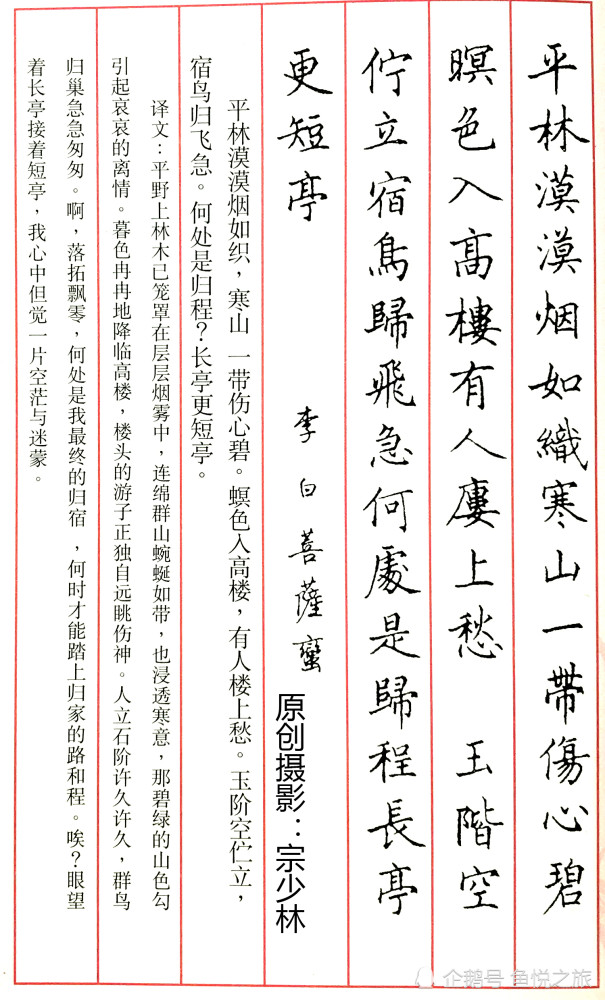 平林漠漠烟如織寒山一帶傷心碧
暝色入高樓有人廔上愁 玉階空
佇立宿鳥歸飛急何處是歸程長亭
更短亭 李白菩薩蠻
原创摄影：宗少林
平林漠漠烟如织，寒山一带伤心碧。螟色入高楼，有人楼上愁。玉阶空伫立，
宿鸟归飞急。何处是归程？长亭更短亭。
译文：平野上林木已笼罩在层层烟雾中，连绵群山蜿蜒如带，也浸透寒意，那碧绿的山色勾
引起哀哀的离情。暮色冉冉地降临高楼，楼头的游子正独自远眺伤神。人立石阶许久许久，群鸟
归巢急急匆匆。啊，落拓飘零，何处是我最终的归宿，何时才能踏上归家的路和程。唉？眼望
着长亭接着短亭，我心中但觉一片空茫与迷蒙。
企鹅号 鱼悦之旅